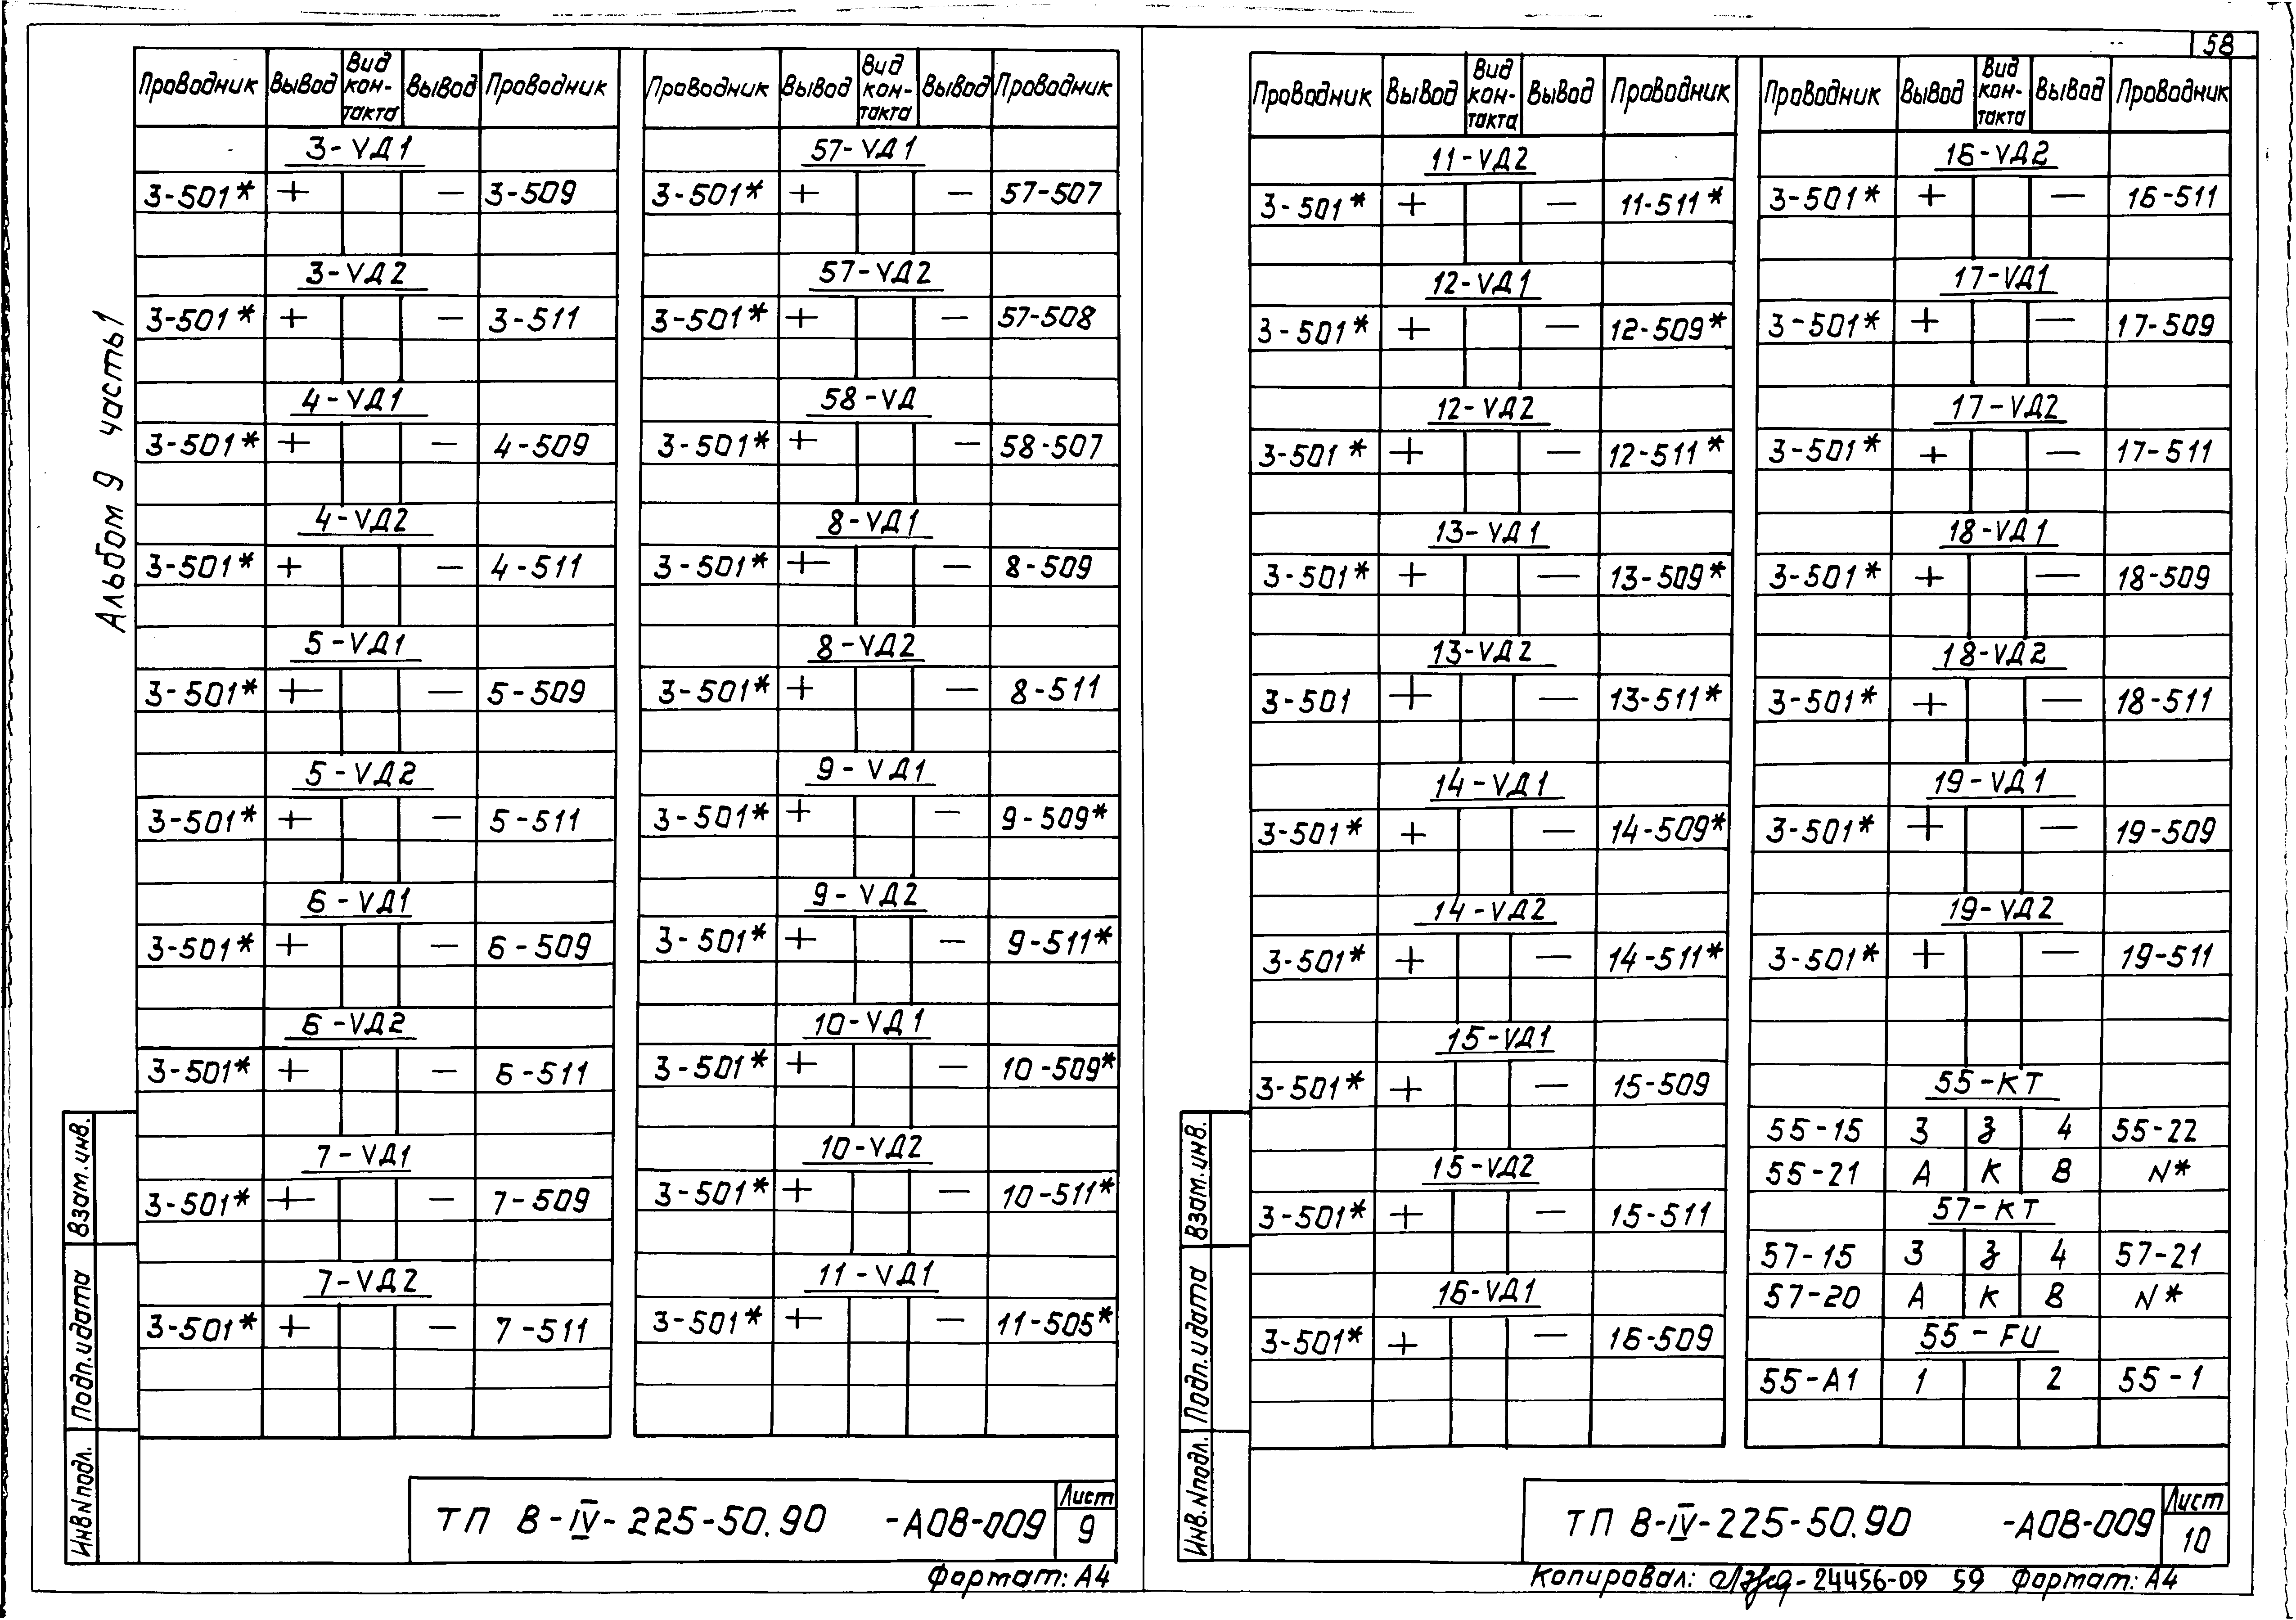 58
Альбом 9 часть 1
Проводник Вывод Вид кон- такта Вывод Проводник
3-VД1
3-501* + — 3-509
3-VД2
3-501* + — 3-511
4-VД1
3-501* + — 4-509
4-VД2
3-501* + — 4-511
5-VД1
3-501* + — 5-509
5-VД2
3-501* + — 5-511
6-VД1
3-501* + — 6-509
6-VД2
3-501* + — 6-511
7-VД1
3-501* + — 7-509
7-VД2
3-501* + — 7-511
Проводник Вывод Вид кон- такта Вывод Проводник
57-VД1
3-501* + — 57-507
57-VД2
3-501* + — 57-508
58-VД
3-501* + — 58-507
8-VД1
3-501* + — 8-509
8-VД2
3-501* + — 8-511
9-VД1
3-501* + — 9-509*
9-VД2
3-501* + — 9-511*
10-VД1
3-501* + — 10-509*
10-VД2
3-501* + — 10-511*
11-VД1
3-501* + — 11-505*
Взам.инв.
Подп.и дата
Инв.Nподл.
ТП В-IV-225-50.90 -АОВ-009
Лист
9
Формат: А4
Проводник Вывод Вид кон- такта Вывод Проводник
11-VД2
3-501* + — 11-511*
12-VД1
3-501* + — 12-509*
12-VД2
3-501* + — 12-511*
13-VД1
3-501* + — 13-509*
13-VД2
3-501 + — 13-511*
14-VД1
3-501* + — 14-509*
14-VД2
3-501* + — 14-511*
15-VД1
3-501* + — 15-509
15-VД2
3-501* + — 15-511
16-VД1
3-501* + — 16-509
Проводник Вывод Вид кон- такта Вывод Проводник
16-VД2
3-501* + — 16-511
17-VД1
3-501* + — 17-509
17-VД2
3-501* + — 17-511
18-VД1
3-501* + — 18-509
18-VД2
3-501* + — 18-511
19-VД1
3-501* + — 19-509
19-VД2
3-501* + — 19-511
55-КТ
55-15 3 з 4 55-22
55-21 А К В N*
57-КТ
57-15 3 з 4 57-21
57-20 А К В N*
55-FU
55-А1 1 2 55-1
Взам.инв.
Подп.и дата
Инв.Nподл.
ТП В-IV-225-50.90 -АОВ-009
Лист
10
Копировал: -24456-09 59 Формат: А4